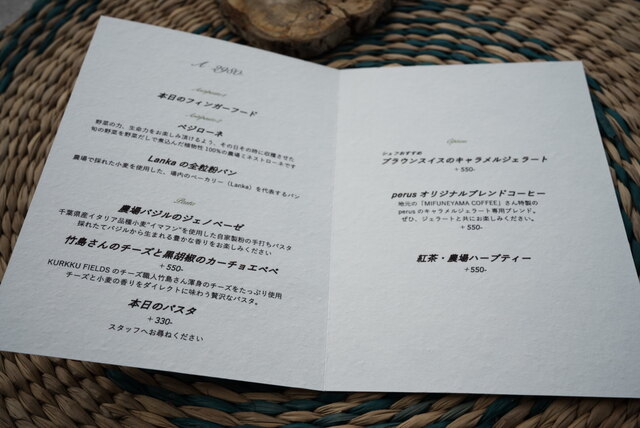 A 2980-
Antipasto1
本日のフィンガーフード
Antipasto2
ベジローネ
野菜の力、生命力をお楽しみ頂けるよう、その日その時に収穫させた
旬の野菜を野菜だしで煮込んだ植物性100%の農場ミネストローネです
Lankaの全粒粉パン
農場で採れた小麦を使用した、場内のベーカリー（Lanka）を代表するパン
Pasta
農場バジルのジェノベーゼ
千葉県産イタリア品種小麦“イマフン”を使用した自家製粉の手打ちパスタ
採れたてバジルから生まれる豊かな香りをお楽しみください
竹島さんのチーズと黒胡椒のカーチョエペペ
+550-
KURKKU FIELDS のチーズ職人竹島さん渾身のチーズをたっぷり使用
チーズと小麦の香りをダイレクトに味わう贅沢なパスタ。
本日のパスタ
+330-
スタッフへお尋ねください
Option
シェフおすすめ
ブラウンスイスのキャラメルジェラート
+550-
perus オリジナルブレンドコーヒー
地元の「MIFUNEYAMA COFFEE」さん特製の
perus のキャラメルジェラート専用ブレンド。
ぜひ、ジェラートと共にお楽しみください。
+550-
紅茶・農場ハーブティー
+550-